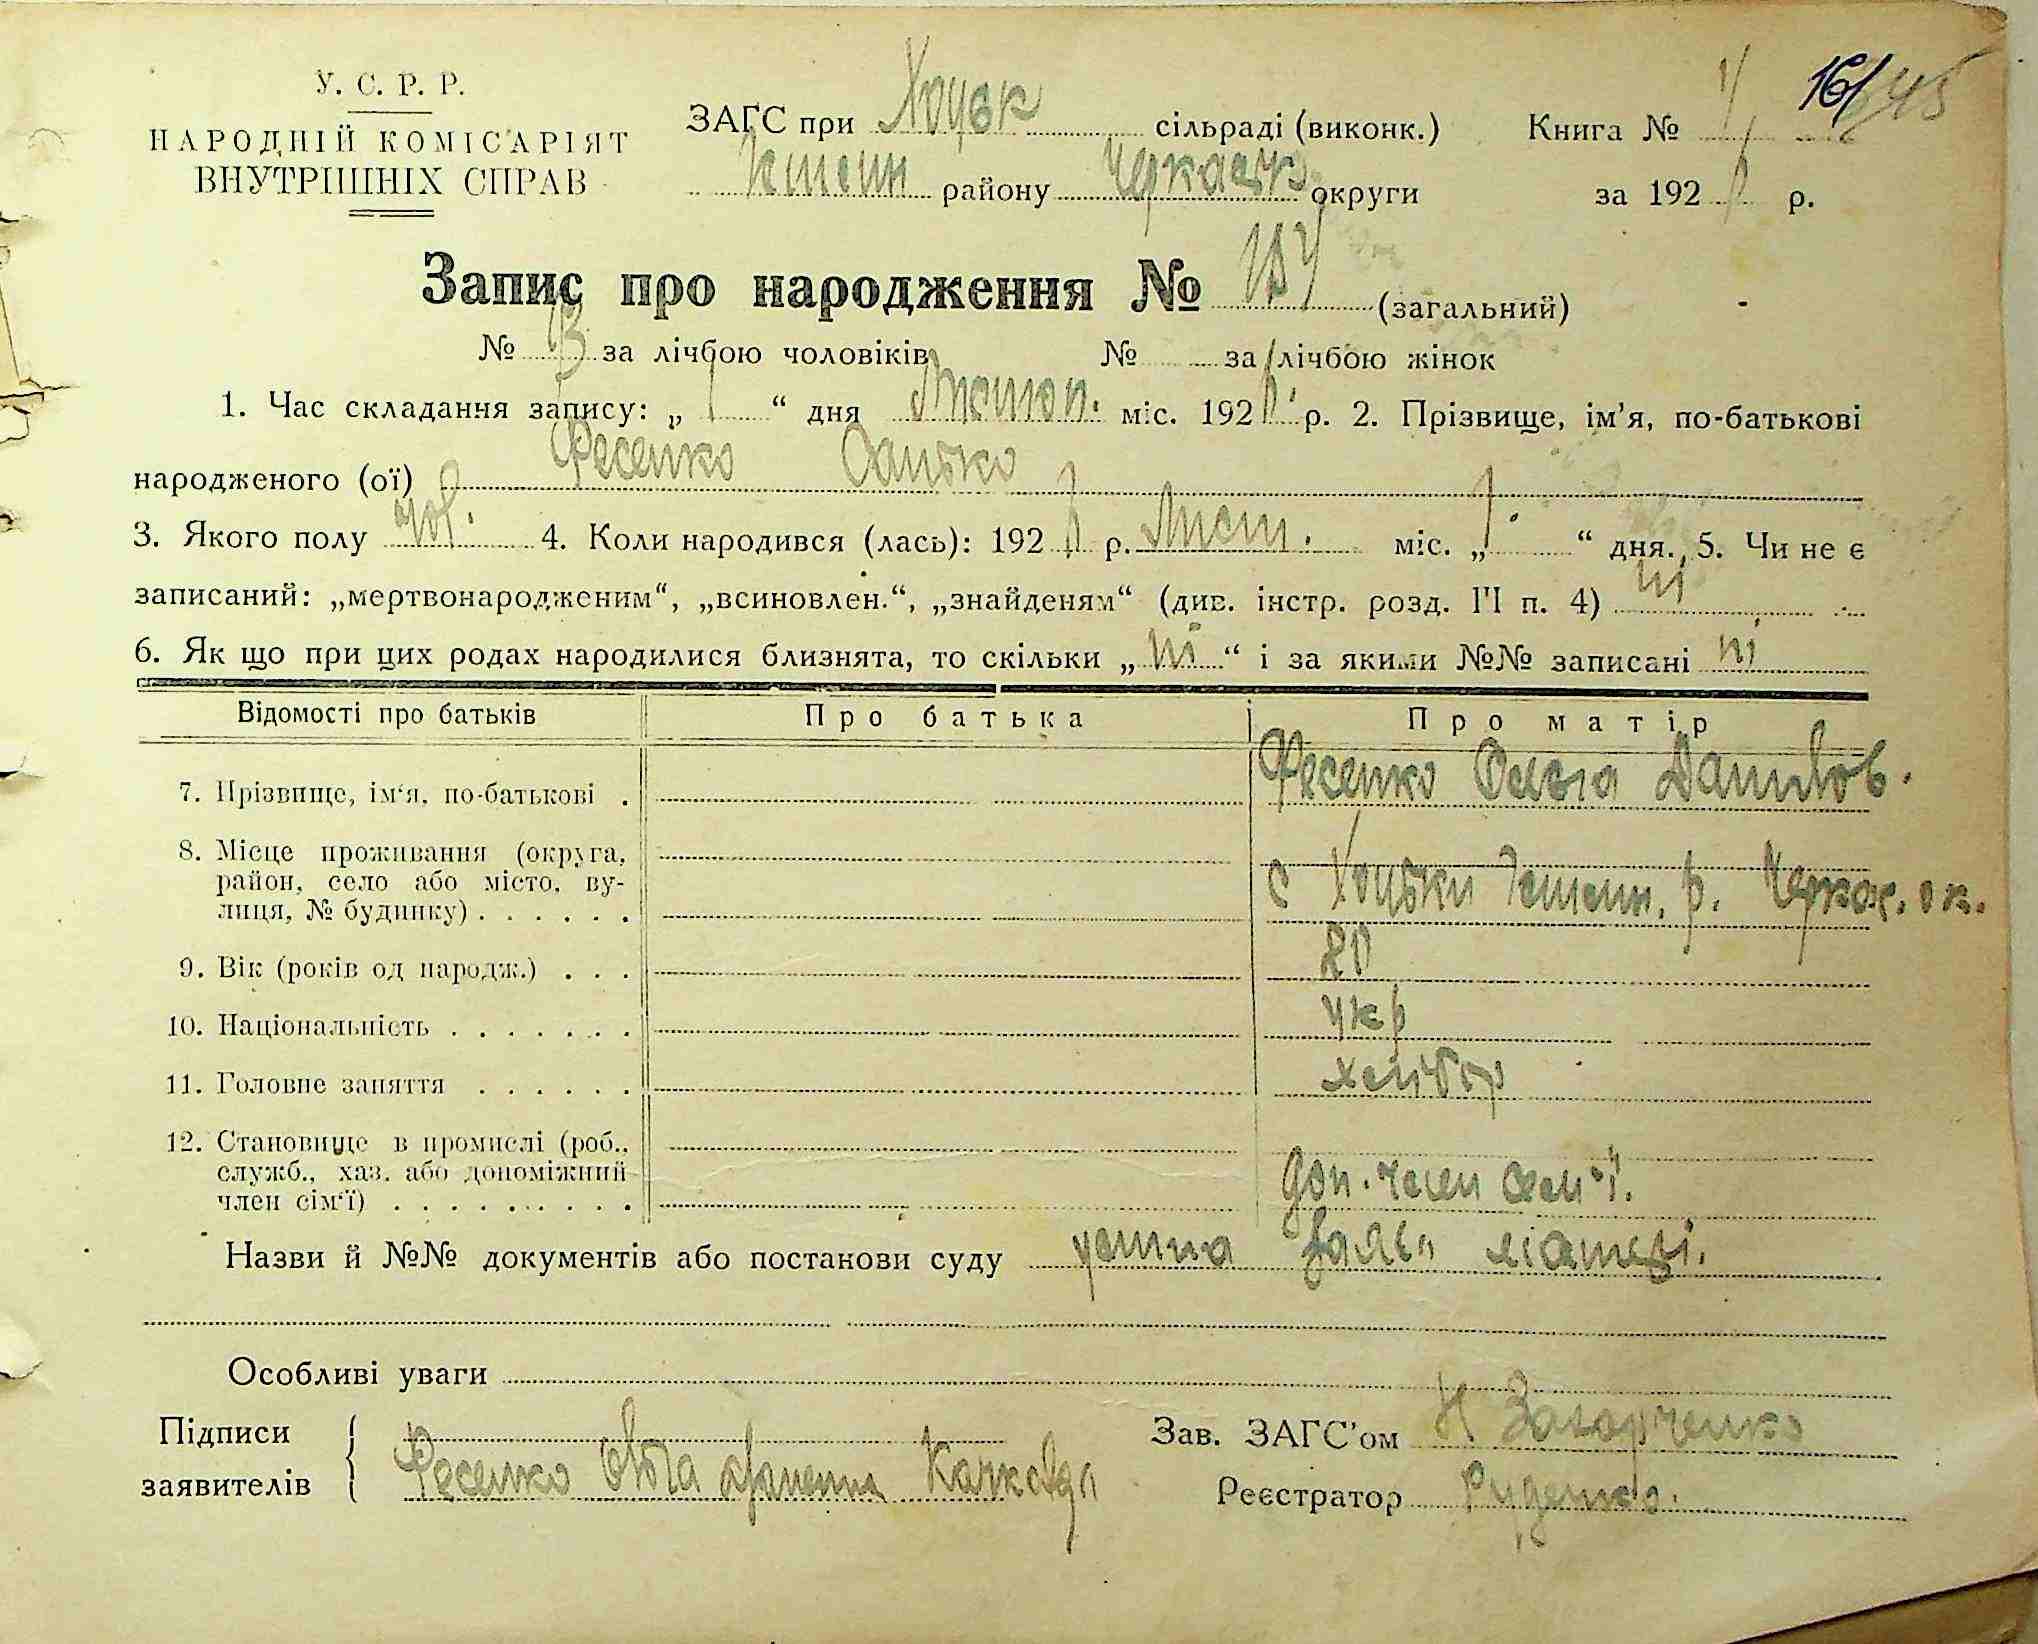 У. С. Р. Р.
НАРОДНІЙ КОМІСАРІЯТ
ВНУТРІШНІХ СПРАВ
ЗАГС при Хоцьк сільраді (виконк.)
районy Черкаськ. округи
Книга № 1
16/45
за 192 р.
Запис про народження № (загальний)
№ за лічбою чоловіків № за лічбою жінок
1. Час складання запису: „ “ дня міс. 192 р. 2. Прізвище, ім’я, по-батькові
народженого (ої) Фесенко Данько
3. Якого полу чол. 4. Коли народився (лась): 192 р. Лист. міс. „ “ дня. 5. Чи не є
записаний: „мертвонародженим“, „всиновлен.“, „знайденям“ (див. інстр. розд. III п. 4) ні
6. Як що при цих родах народилися близнята, то скільки „ні“ і за якими №№ записані ні
Відомості про батьків Про батька Про матір
7. Прізвище, ім‘я, по-батькові . Фесенко Ольга Данилов.
8. Місце проживання (округа,
район, село або місто, ву-
лиця, № будинку) . . . . . . с Хоцьки р. Черкас. ок.
9. Вік (років од народж.) . . . 20
10. Національність . . . . . . . укр
11. Головне заняття . . . . . . хлібор
12. Становище в промислі (роб.,
служб., хаз. або допоміжний
член сім‘ї) . . . . . . . . . . доп. член сем'ї.
Назви й №№ документів або постанови суду устна заява матері.
Особливі уваги
Підписи
заявителів Фесенко
Зав. ЗАГС’ом Н Захарченко
Реєстратор Руденко.